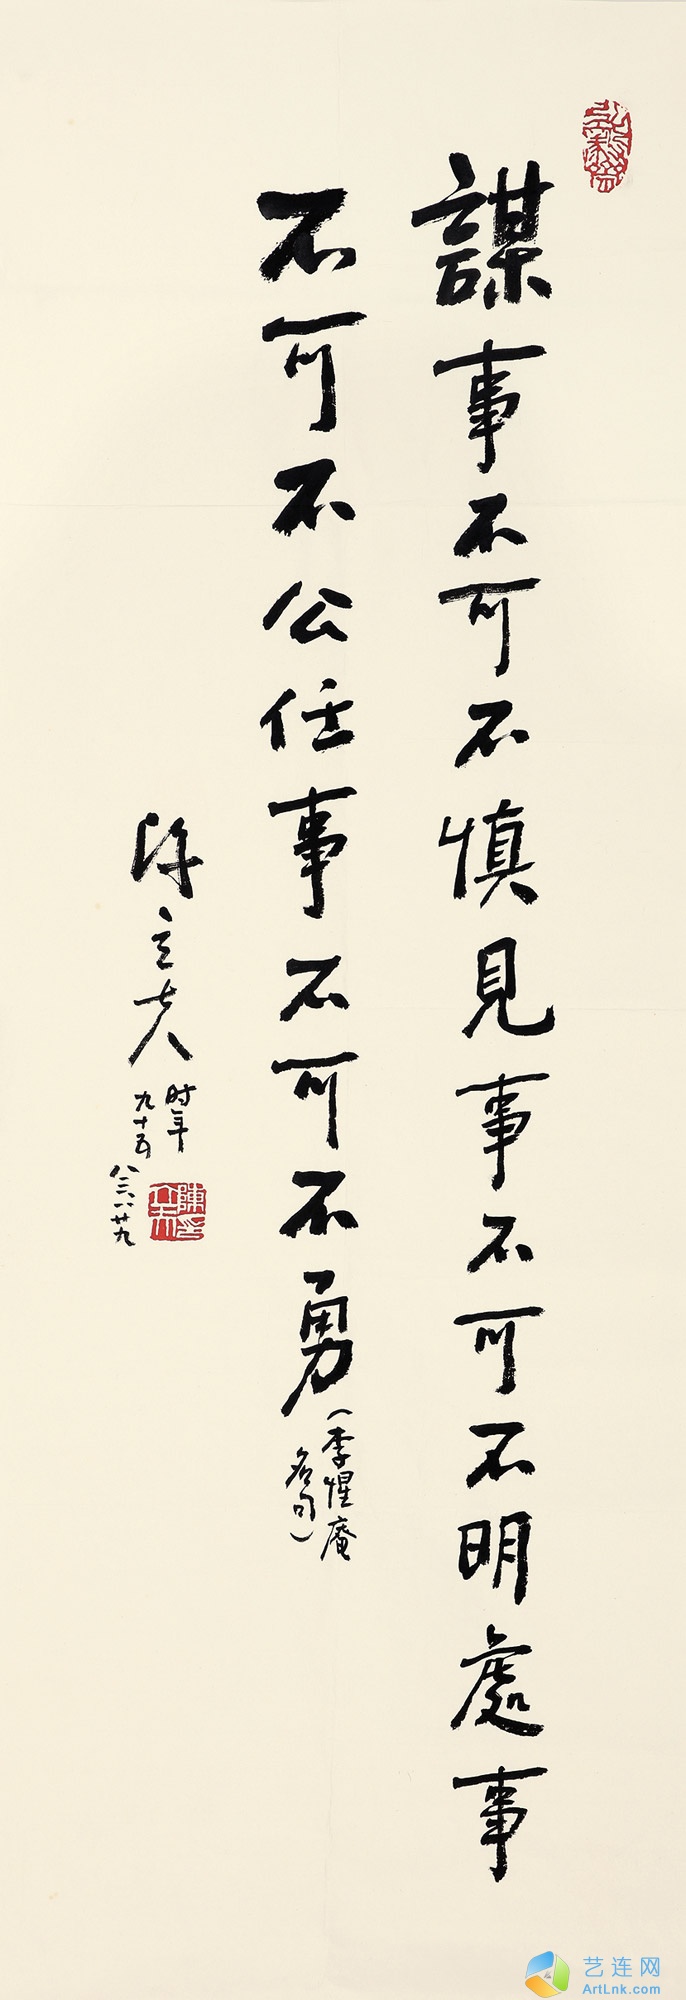 謀事不可不慎見事不可不明處事
不可不公任事不可不勇
(李惺庵
名句)
陳立夫
时年
九十五
八三、八、廿九
艺连网
ArtLnk.com